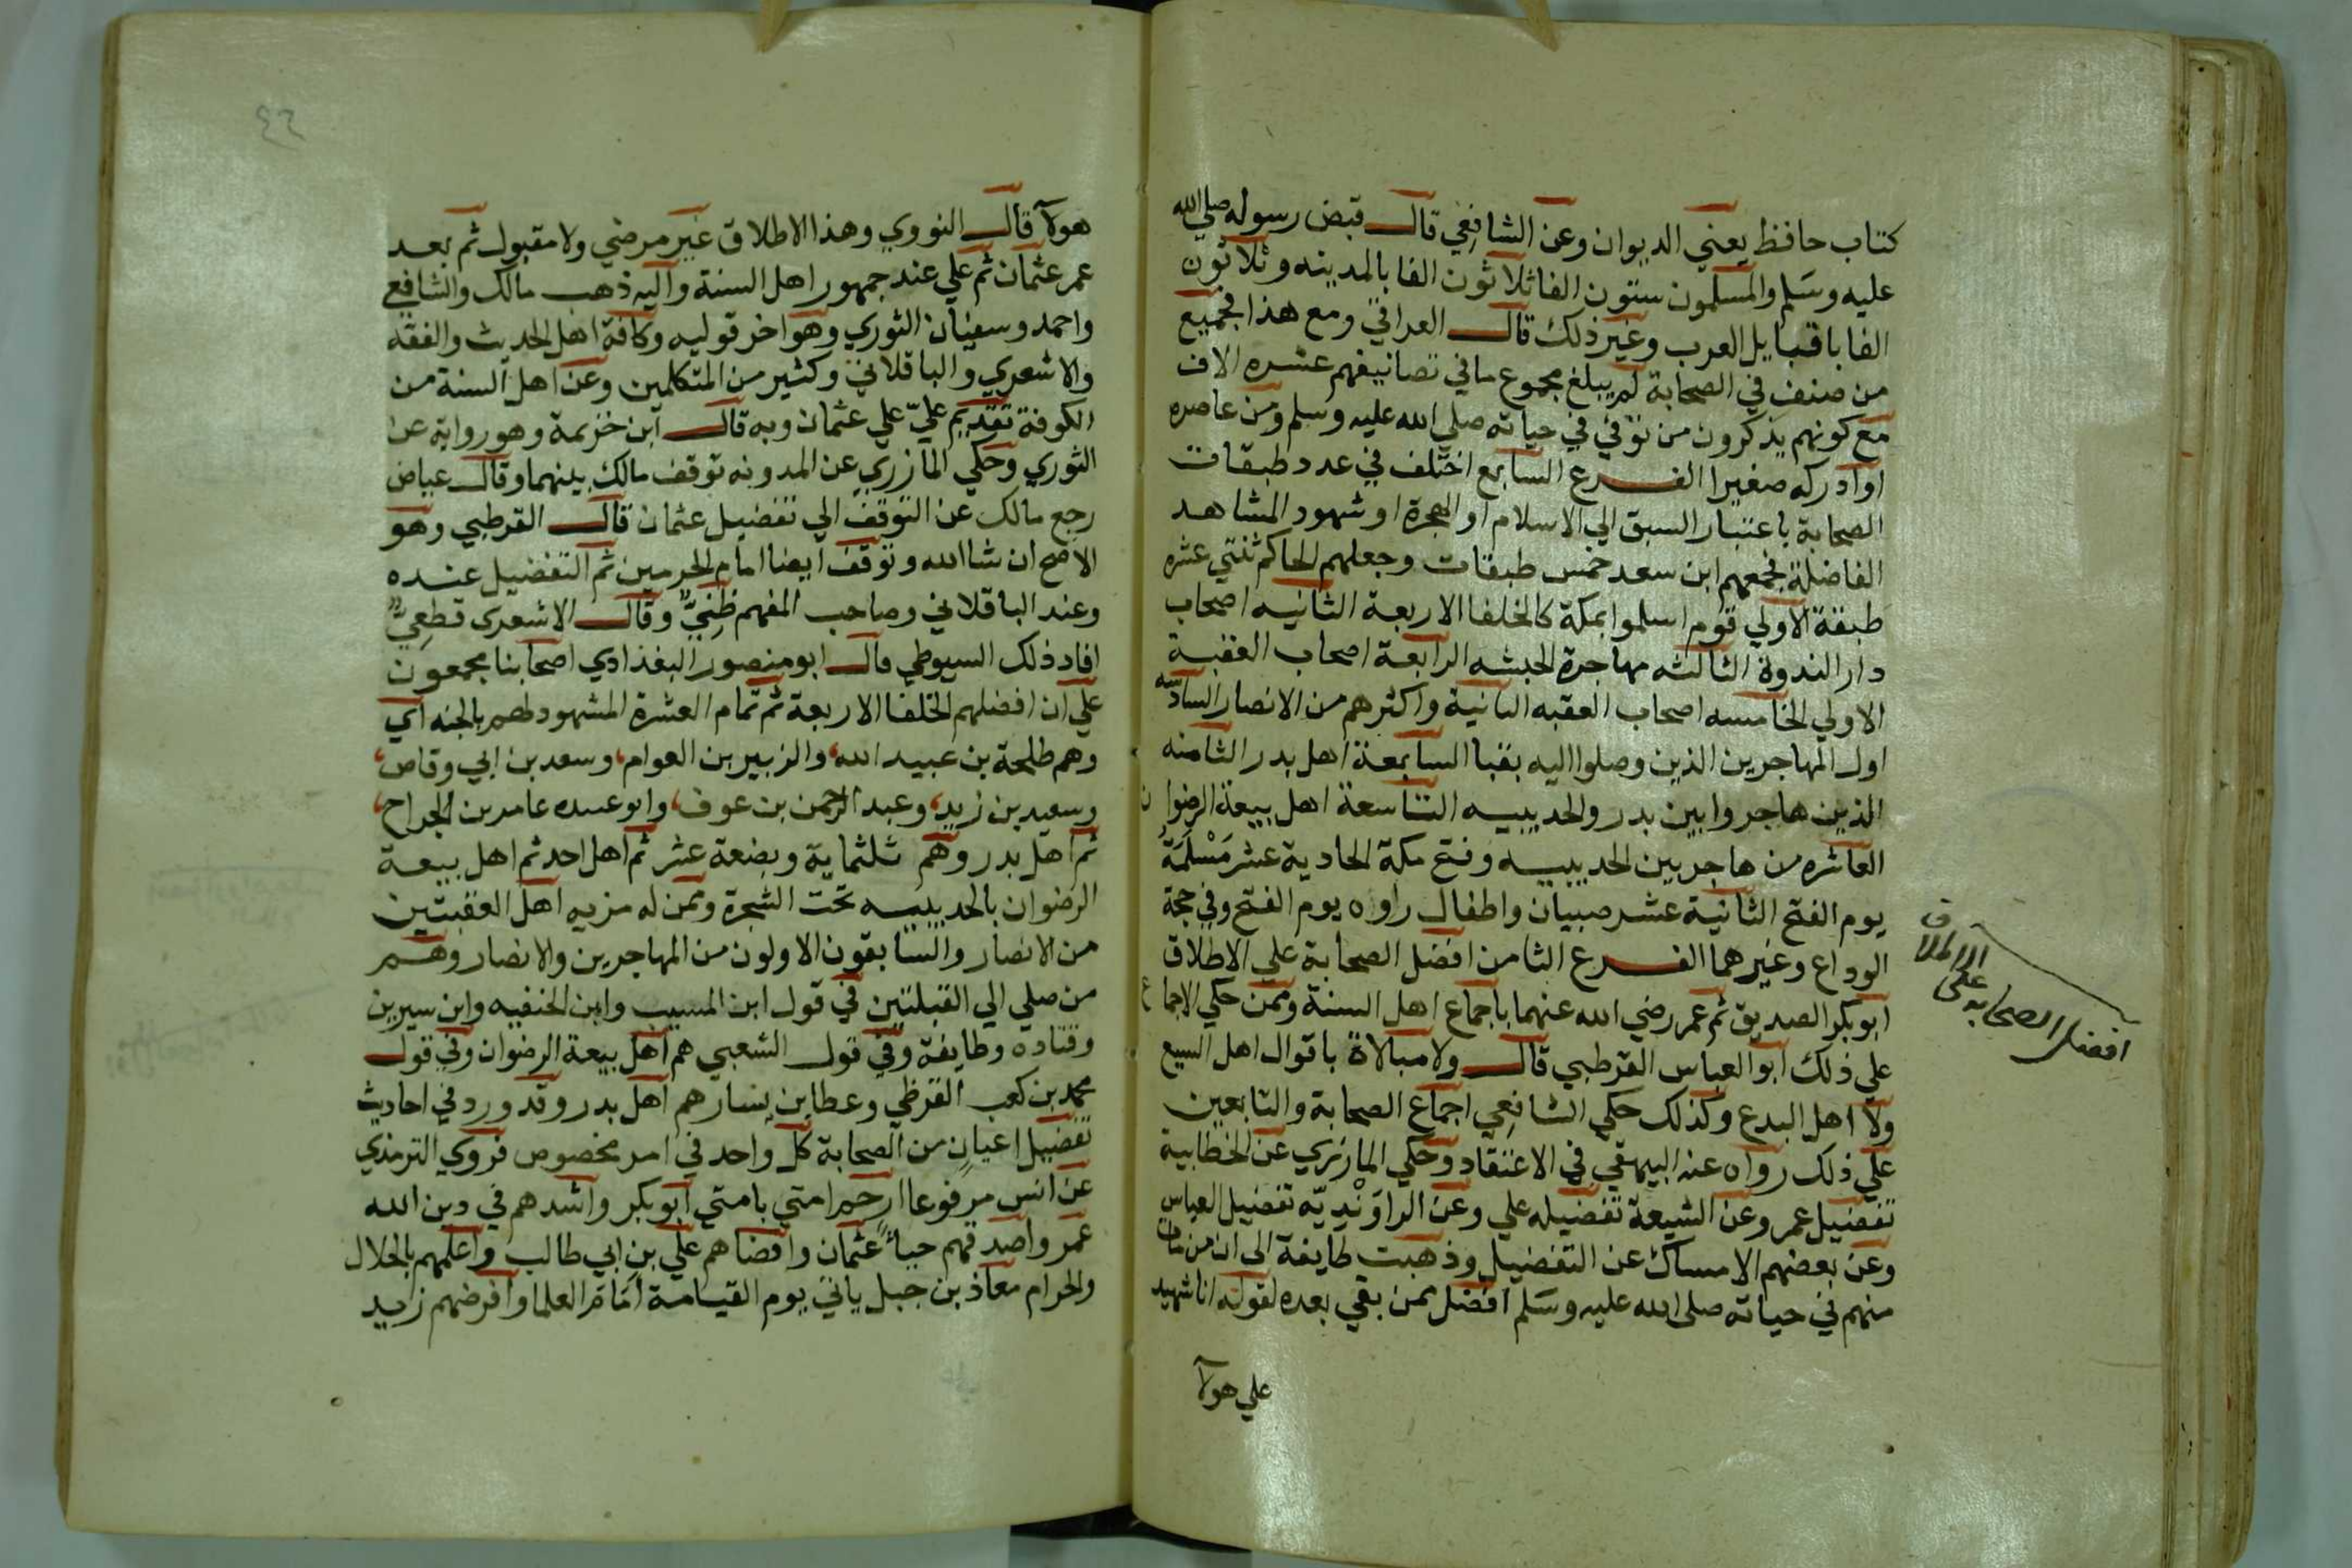 كتاب حافظ يعني الديوان وعن الشافعي قال قبض رسوله صلي الله
عليه وسلم والمسلمون ستون الفا ثلاثون الفا بالمدينه وثلاثون
الفا با قبايل العرب وغير ذلك قال العراقي ومع هذا فجميع
من صنف في الصحابة لم يبلغ مجموع ما في تصانيفهم عشره الاف
مع كونهم يذكرون من توفي في حياته صلي الله عليه وسلم ومن عاصره
او ادركه صغيرا الفرع السابع اختلف في عدد طبقات
الصحابة باعتبار السبق الي الاسلام او الهجرة او شهود المشاهد
الفاضلة فجمعهم ابن سعد خمس طبقات وجعلهم الحاكم ثنتي عشره
طبقة الاولي قوم اسلموا بمكة كالخلفا الاربعة الثانيه اصحاب
دار الندوة الثالثه مهاجرة الحبشه الرابعة اصحاب العقبة
الاولي الخامسه اصحاب العقبه الثانية واكثرهم من الانصار السادسه
اول المهاجرين الذين وصلوا اليه بقبا السابعة اهل بدر الثامنه
الذين هاجروا بين بدر والحديبيه التاسعة اهل بيعة الرضوان
العاشره من هاجر بين الحديبيه وفتح مكة الحادية عشر مَسْلَمَةُ
يوم الفتح الثانية عشر صبيان واطفال راوه يوم الفتح وفي حجة
الوداع وغيرهما الفرع الثامن افضل الصحابة علي الاطلاق
ابو بكر الصديق ثم عمر رضي الله عنهما باجماع اهل السنة وممن حكي الاجماع
علي ذلك ابو العباس القرطبي قال ولا مبالاة باقوال اهل السيع
ولا اهل البدع وكذلك حكي الشافعي اجماع الصحابة والتابعين
علي ذلك رواه عنه البيهقي في الاعتقاد وحكي المازري عن الخطابية
تفضيل عمر وعن الشيعة تفضيله علي وعن الراوَنْديّه تفضيل العباس
وعن بعضهم الامساك عن التفضيل وذهبت طايفة الي ان من مات
منهم في حياته صلى الله عليه وسلم افضل ممن بقي بعده لقوله انا شهيد
علي هولآ
افضل الصحابه على
الاطلاق
٤٦
هولآ قال النووي وهذا الاطلاق غير مرضي ولا مقبول ثم بعد
عمر عثمان ثم علي عند جمهور اهل السنة واليه ذهب مالك والشافعي
واحمد وسفيان الثوري وهو اخر قوليه وكافة اهل الحديث والفقه
والاشعري والباقلاني وكثير من المتكلمين وعن اهل السنة من
الكوفة تقديم عليّ علي عثمان وبه قال ابن خزيمة وهو رواية عن
الثوري وحكي المازري عن المدونه توقف مالك بينهما وقال عياض
رجع مالك عن التوقف الي تفضيل عثمان قال القرطبي وهو
الاصح ان شا الله وتوقف ايضا امام الحرمين ثم التفضيل عنده
وعند الباقلاني وصاحب المفهم ظنيٌّ وقال الاشعري قطعيٌّ
افاد ذلك السيوطي قال ابو منصور البغدادي اصحابنا مجمعون
علي ان افضلهم الخلفا الاربعة ثم تمام العشرة المشهود لهم بالجنه اي
وهم طلحة بن عبيد الله، والزبير بن العوام، وسعد بن ابي وقاص،
وسعيد بن زيد، وعبد الرحمن بن عوف، وابو عبيده عامر بن الجراح،
ثم اهل بدر وهم ثلثماية وبضعة عشر ثم اهل احد ثم اهل بيعة
الرضوان بالحديبيه تحت الشجرة وممن له مزيه اهل العقبتين
من الانصار والسابقون الاولون من المهاجرين والانصار وهم
من صلي الي القبلتين في قول ابن المسيب وابن الحنفيه وابن سيرين
وقتاده وطايفة وفي قول الشعبي هم اهل بيعة الرضوان وفي قول
محمد بن كعب القرظي وعطا بن يسار هم اهل بدر وقد ورد في احاديث
تفضيل اعيان من الصحابة كل واحد في امر مخصوص فروي الترمذي
عن انس مرفوعا ارحم امتي بامتي ابو بكر واشدهم في دين الله
عمر واصدقهم حياءً عثمان واقضاهم علي بن ابي طالب واعلمهم بالحلال
والحرام معاذ بن جبل ياتي يوم القيامة امام العلما وافرضهم زيد